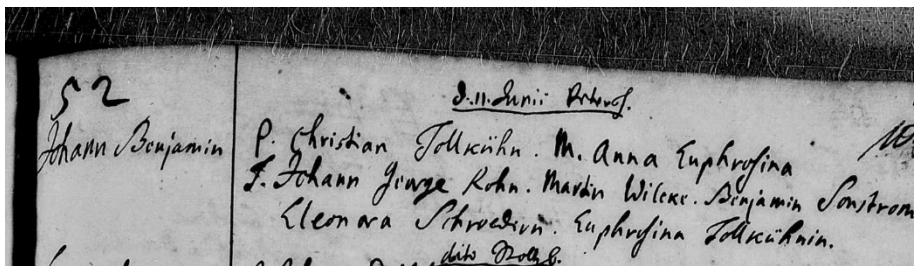 52
d. 11. Junii
Johann Benjamin
P. Christian Tollkühn. M. Anna Euphrosina
T. Johann George Rohn. Martin Wilcke. Benjamin Sonstrom
Eleonora Schroederin. Euphrosina Tollkühnin.
dito